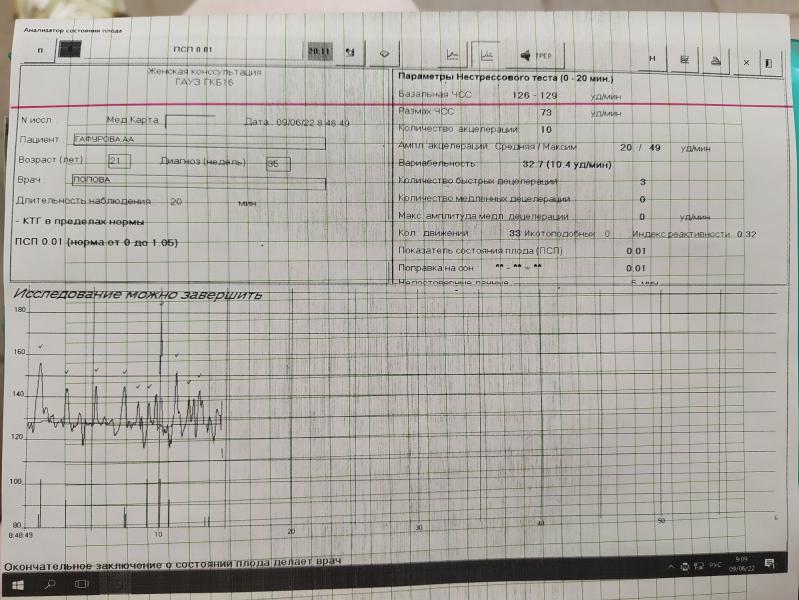 Анализатор состояния плода
П
ПСП 0.01
20:11
ТРЕР
Н
Женская консультация
ГАУЗ ГКБ16
N иссл.
Мед.Карта
Дата: 09/06/22 8:48:49
Пациент
ГАФУРОВА АА
Возраст (лет)
21
Диагноз (недель)
35
Врач
ПОПОВА
Длительность наблюдения 20 мин
- КТГ в пределах нормы
ПСП 0.01 (норма от 0 до 1.05)
Параметры Нестрессового теста (0 - 20 мин.)
Базальная ЧСС 126 - 129 уд/мин
Размах ЧСС 73 уд/мин
Количество акцелераций: 10
Ампл. акцелераций: Средняя / Максим 20 / 49 уд/мин
Вариабельность: 32.7 (10.4 уд/мин)
Количество быстрых децелераций 3
Количество медленных децелераций 0
Макс. амплитуда медл. децелераций 0 уд/мин
Кол. движений: 33 Икотоподобных 0 Индекс реактивности 0.32
Показатель состояния плода (ПСП) 0.01
Поправка на сон ** - ** = ** 0.01
Недостоверные данные 5 мин
Исследование можно завершить
180
160
140
120
100
80
8:48:49
10
20
30
40
50
6
Окончательное заключение о состоянии плода делает врач
РУС
9:09
09/06/22